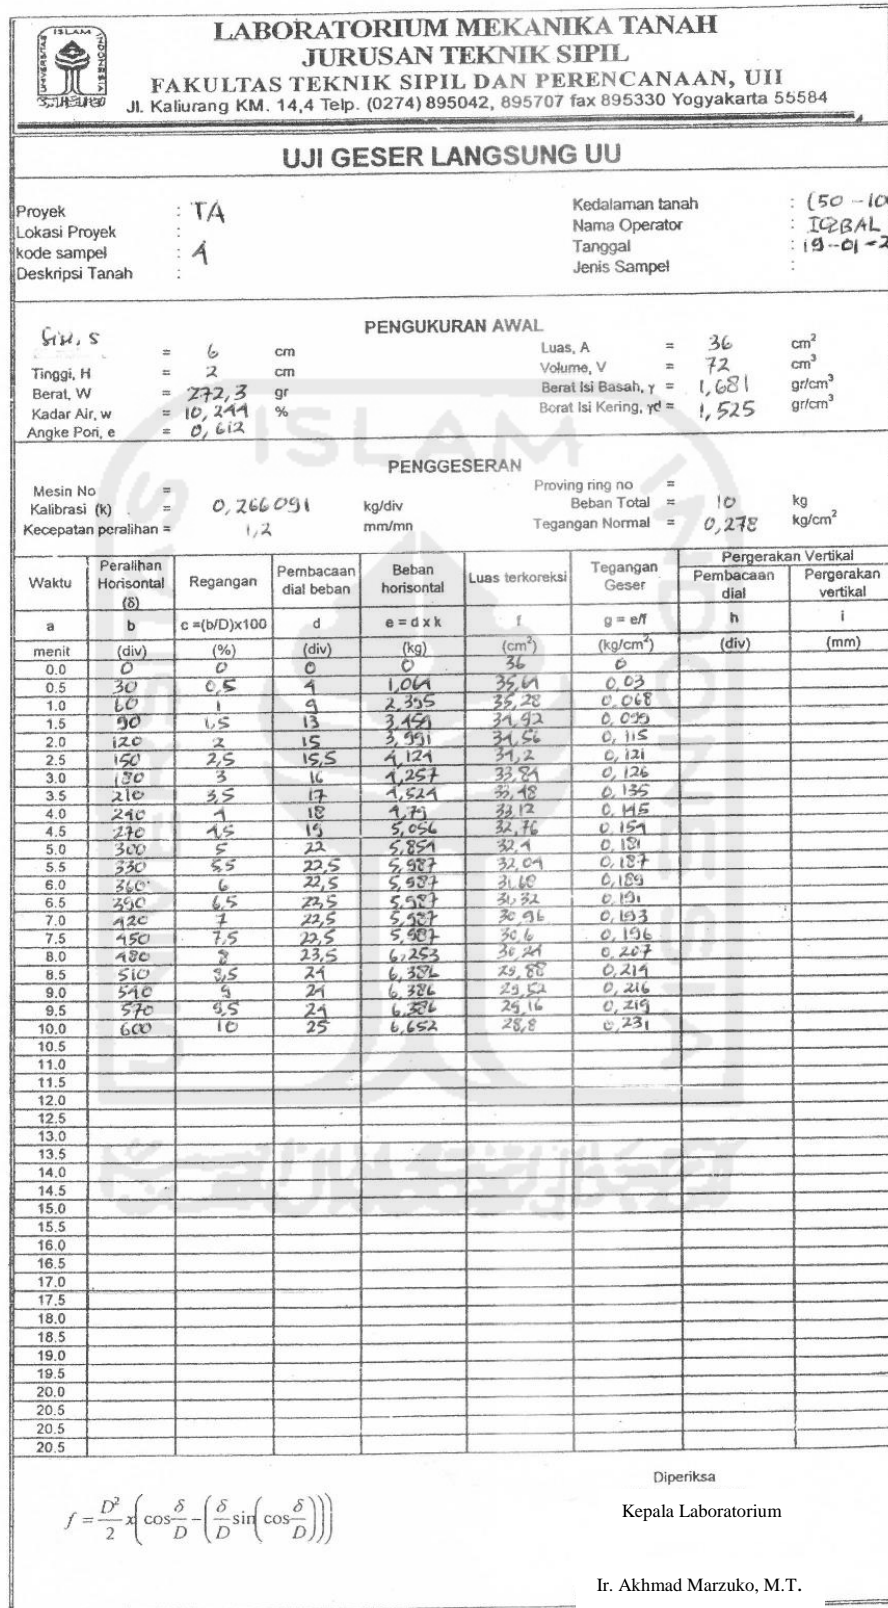 LABORATORIUM MEKANIKA TANAH
JURUSAN TEKNIK SIPIL
FAKULTAS TEKNIK SIPIL DAN PERENCANAAN, UII
Jl. Kaliurang KM. 14,4 Telp. (0274) 895042, 895707 fax 895330 Yogyakarta 55584
UJI GESER LANGSUNG UU
Proyek : TA
Lokasi Proyek :
kode sampel : A
Deskripsi Tanah :
Kedalaman tanah : (50 - 10
Nama Operator : IQBAL
Tanggal : 19-01-2
Jenis Sampel :
PENGUKURAN AWAL
Sisi, S = 6 cm
Tinggi, H = 2 cm
Berat, W = 272,3 gr
Kadar Air, w = 10,244 %
Angke Pori, e = 0,612
Luas, A = 36 cm²
Volume, V = 72 cm³
Berat Isi Basah, γ = 1,681 gr/cm³
Berat Isi Kering, γd = 1,525 gr/cm³
PENGGESERAN
Mesin No =
Kalibrasi (k) = 0,266091 kg/div
Kecepatan peralihan = 1,2 mm/mn
Proving ring no =
Beban Total = 10 kg
Tegangan Normal = 0,278 kg/cm²
Waktu Peralihan Horisontal (δ) Regangan Pembacaan dial beban Beban horisontal Luas terkoreksi Tegangan Geser Pergerakan Vertikal
Pembacaan dial Pergerakan vertikal
a b c =(b/D)x100 d e = d x k f g = e/f h i
menit (div) (%) (div) (kg) (cm²) (kg/cm²) (div) (mm)
0.0 0 0 0 0 36 0
0.5 30 0,5 4 1,064 35,64 0,03
1.0 60 1 9 2,395 35,28 0,068
1.5 90 1,5 13 3,459 34,92 0,099
2.0 120 2 15 3,991 34,56 0,115
2.5 150 2,5 15,5 4,124 34,2 0,121
3.0 180 3 16 4,257 33,84 0,126
3.5 210 3,5 17 4,524 33,48 0,135
4.0 240 4 18 4,79 33,12 0,145
4.5 270 4,5 19 5,056 32,76 0,154
5.0 300 5 22 5,854 32,4 0,181
5.5 330 5,5 22,5 5,987 32,04 0,187
6.0 360 6 22,5 5,987 31,68 0,189
6.5 390 6,5 22,5 5,987 31,32 0,191
7.0 420 7 22,5 5,987 30,96 0,193
7.5 450 7,5 22,5 5,987 30,6 0,196
8.0 480 8 23,5 6,253 30,24 0,207
8.5 510 8,5 24 6,386 29,88 0,214
9.0 540 9 24 6,386 29,52 0,216
9.5 570 9,5 24 6,386 29,16 0,219
10.0 600 10 25 6,652 28,8 0,231
10.5
11.0
11.5
12.0
12.5
13.0
13.5
14.0
14.5
15.0
15.5
16.0
16.5
17.0
17.5
18.0
18.5
19.0
19.5
20.0
20.5
20.5
20.5
f = D²/2 x(cos δ/D - (δ/D sin(cos δ/D)))
Diperiksa
Kepala Laboratorium
Ir. Akhmad Marzuko, M.T.